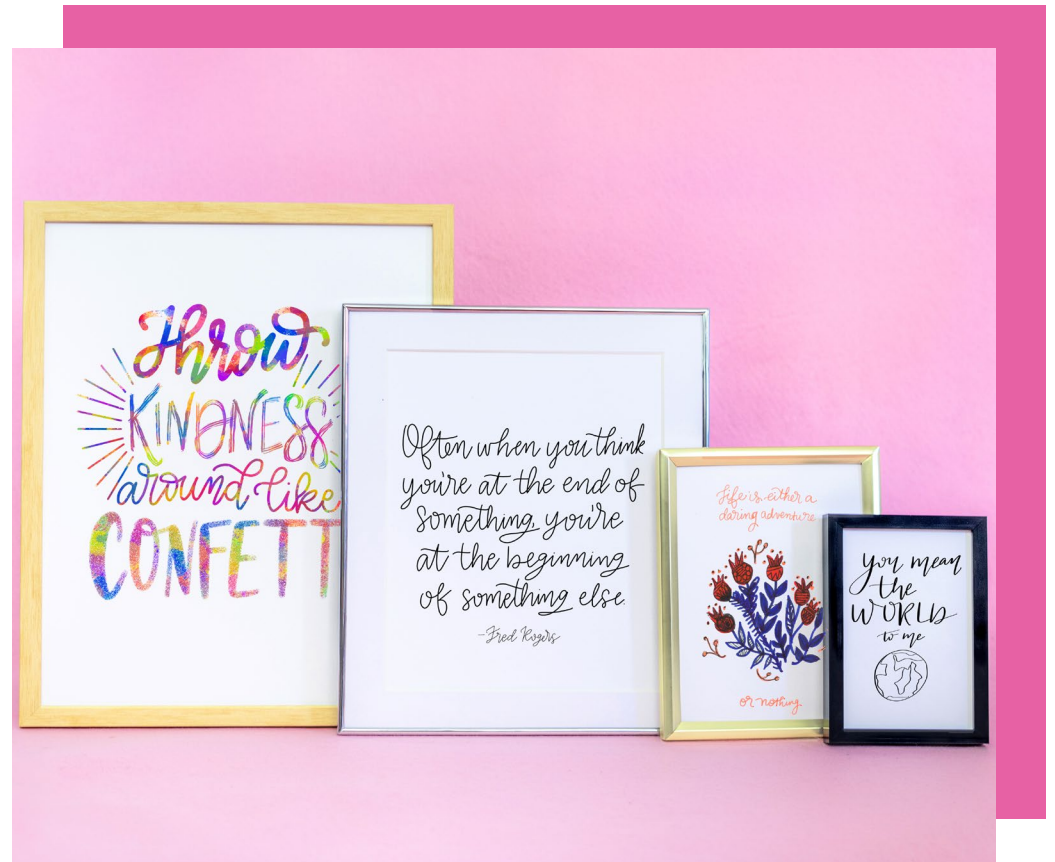 Throw
KINDNESS
around like
CONFETT
Often when you think
you're at the end of
something, you're
at the beginning
of something else.
-Fred Rogers
Life is either a
daring adventure
or nothing.
you mean
the
WORLD
to me